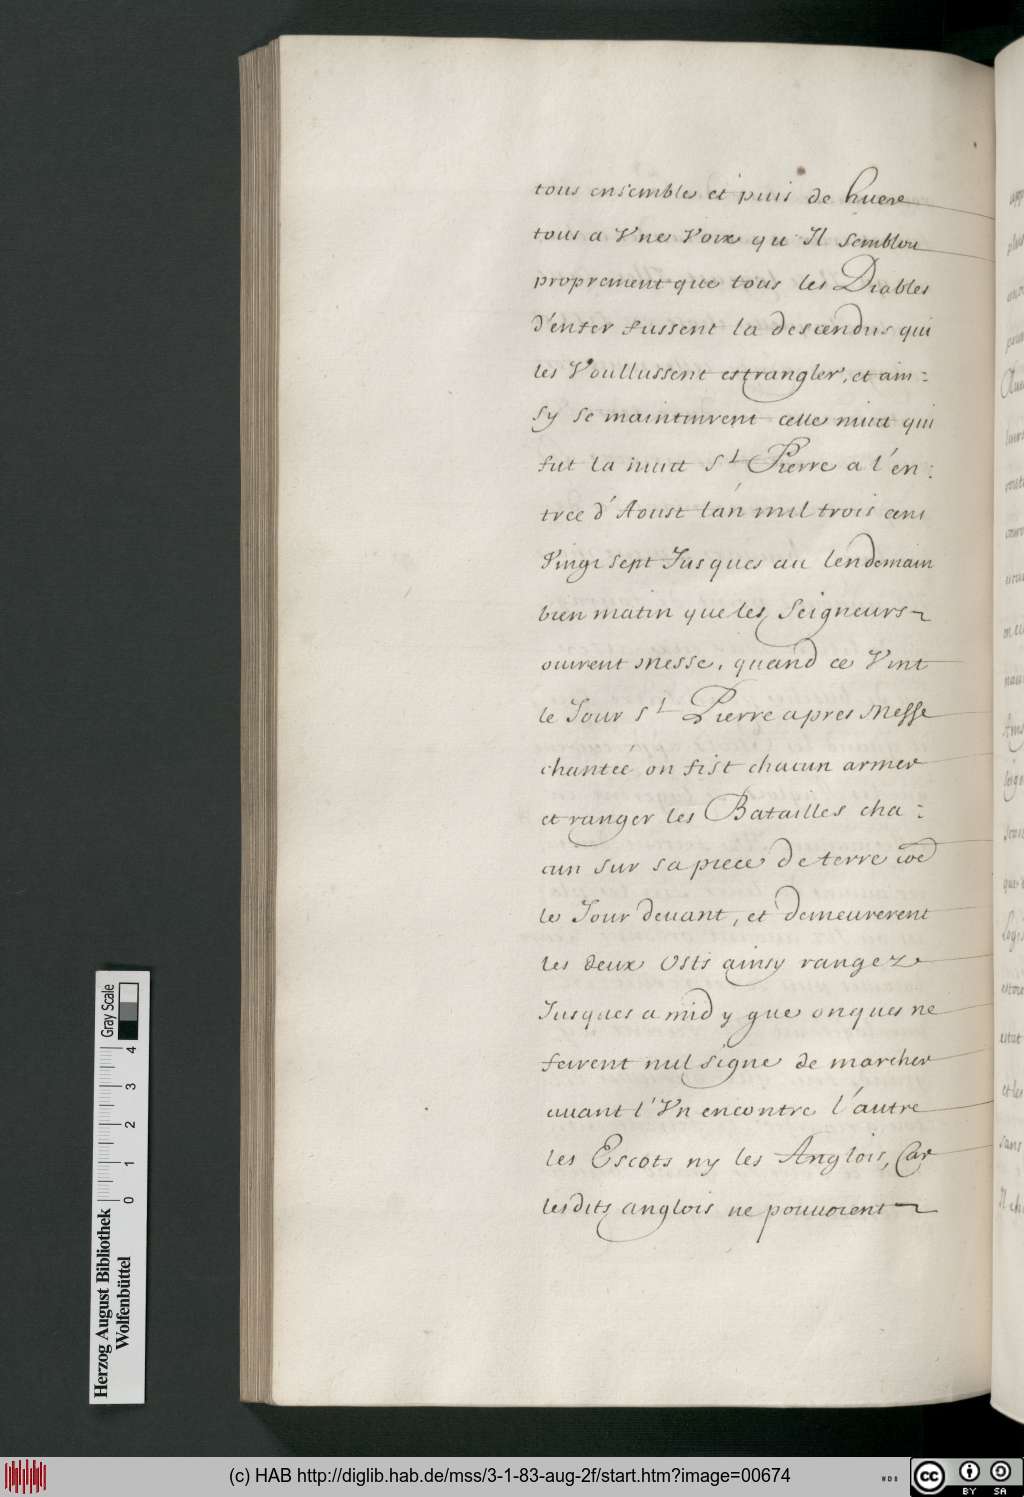 tous ensemble et puis de huere
tous a Vne Voix qu Il sembloit
proprement que tous les Diables
d'enfer fussent la descendus qui
les Voullussent estrangler, et ain :
sy se maintinrent celle nuict qui
fut la nuict St Pierre a l'en :
trée d'Aoust l'an mil trois cens
Vingt sept Jusques au lendemain
bien matin que les Seigneurs
ouirent Messe, quand ce Vint
le Jour St Pierre apres Messe
chantée on fist chacun armer
et ranger les Batailles cha :
cun sur sa piece de terre coe
le Jour devant, et demeurerent
les deux Osts ainsy rangez
Jusques a midy que onques ne
feirent nul signe de marcher
avant l'Vn encontre l'autre
les Escots ny les Anglois, Car
lesdits anglois ne pouvoient
Herzog August Bibliothek
Wolfenbüttel
0 1 2 3 4
Gray Scale
(c) HAB http://diglib.hab.de/mss/3-1-83-aug-2f/start.htm?image=00674
WDB
cc BY SA